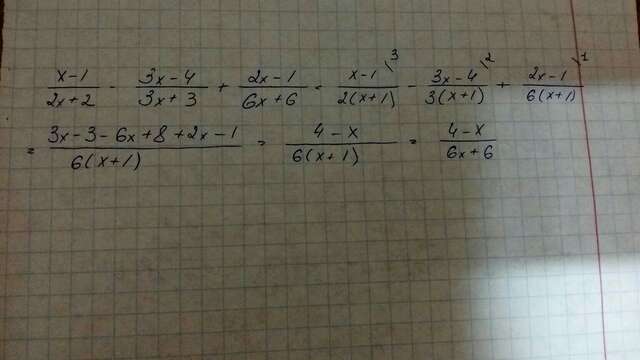 (x-1)/(2x+2) - (3x-4)/(3x+3) + (2x-1)/(6x+6) = (x-1)\³/(2(x+1)) - (3x-4)\²/(3(x+1)) + (2x-1)\¹/(6(x+1))
= (3x-3-6x+8+2x-1)/(6(x+1)) = (4-x)/(6(x+1)) = (4-x)/(6x+6)